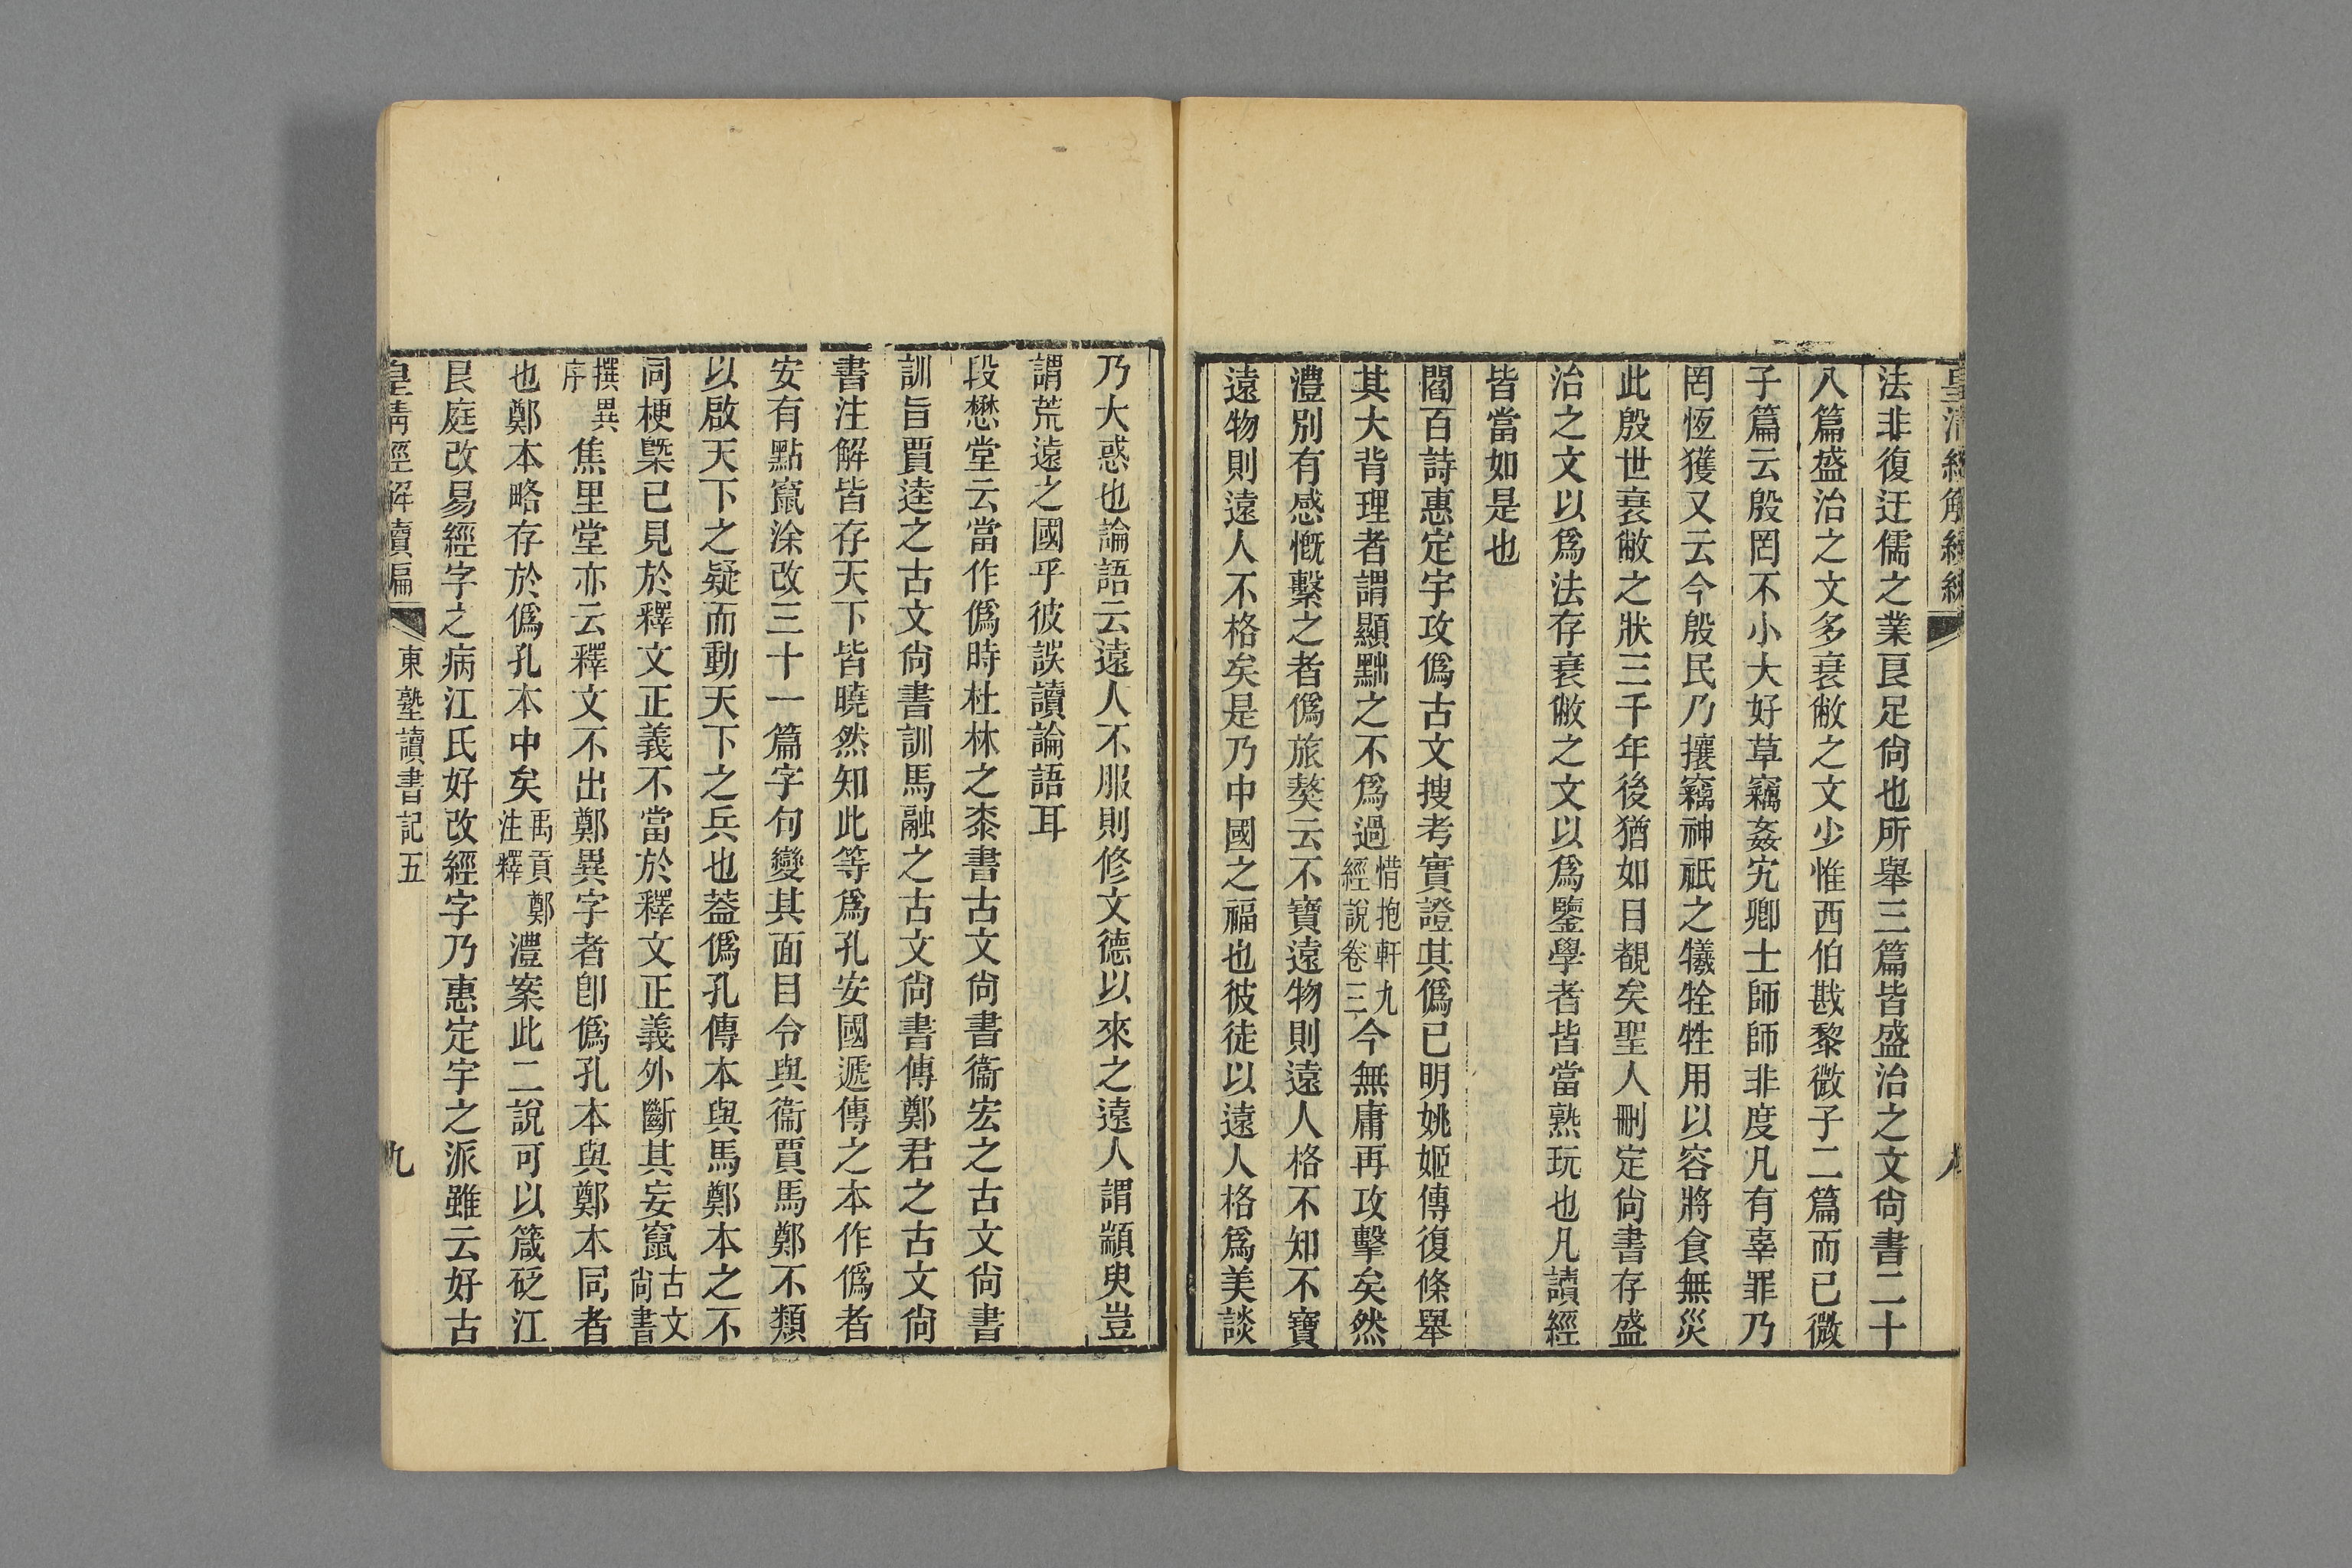 法非復迂儒之業艮足尙也所舉三篇皆盛治之文尙書二十
八篇盛治之文多衰敝之文少惟西伯戡黎微子二篇而已微
子篇云殷罔不小大好草竊姦宄卿士師師非度凡有辜罪乃
罔恆獲又云今殷民乃攘竊神祇之犧牷牲用以容將食無災
此殷世衰敝之狀三千年後猶如目覩矣聖人刪定尙書存盛
治之文以爲法存衰敝之文以爲鑒學者皆當熟玩也凡讀經
皆當如是也
閻百詩惠定宇攻僞古文搜考實證其僞已明姚姬傳復條舉
其大背理者謂顯黜之不爲過惜抱軒九經說卷三今無庸再攻擊矣然
澧別有感慨繫之者僞旅獒云不寶遠物則遠人格不知不寶
遠物則遠人不格矣是乃中國之福也彼徒以遠人格爲美談
乃大惑也論語云遠人不服則修文德以來之遠人謂顓臾豈
謂荒遠之國乎彼誤讀論語耳
段懋堂云當作僞時杜林之桼書古文尙書衞宏之古文尙書
訓旨賈逵之古文尙書訓馬融之古文尙書傳鄭君之古文尙
書注解皆存天下皆曉然知此等爲孔安國遞傳之本作僞者
安有點竄涂改三十一篇字句變其面目令與衞賈馬鄭不類
以啟天下之疑而動天下之兵也葢僞孔傳本與馬鄭本之不
同梗槩已見於釋文正義不當於釋文正義外斷其妄竄古文尙書
撰異序焦里堂亦云釋文不出鄭異字者卽僞孔本與鄭本同者
也鄭本略存於僞孔本中矣禹貢鄭注釋澧案此二說可以箴砭江
艮庭改易經字之病江氏好改經字乃惠定宇之派雖云好古
皇淸經解續編
東塾讀書記五
九